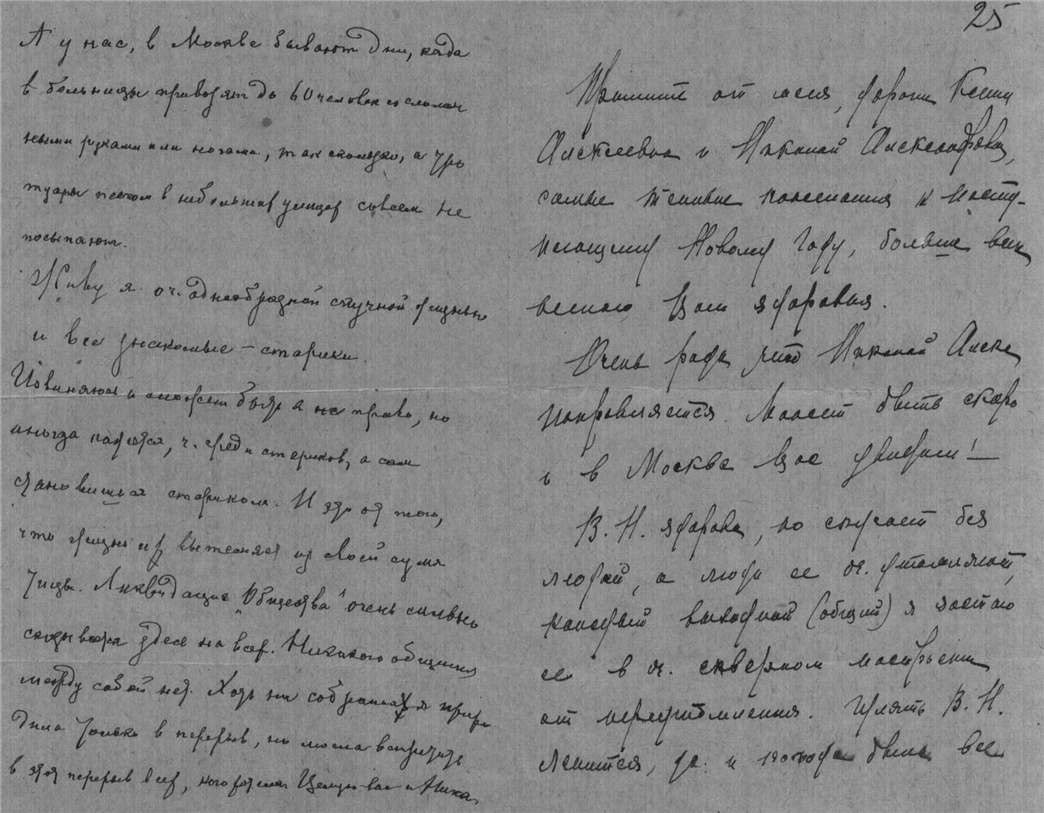 А у нас, в Москве бывают дни, когда
в больницы привозят до 60 человек со сломан
ными руками или ногами, так скользко, а тро
туары песком в небольших улицах совсем не
посыпают.
Живу я оч. однообразной скучной жизнью
и все знакомые – старики.
Извиняюсь и может быть я не права, но
иногда кажется, ч. среди стариков, и сам
становишься стариком. И это от того,
что жизнь их вытесняет из своей гущи
Ликвидация "Общества" очень сильно
сказывается здесь на всех. Никакого общения
между собой нет. Хоть на собраниях я прихо
дила только в перерыв, но могла встретить
в этот перерыв всех, кого хотела
25
Примите от меня, дорогие Ксения
Алексеевна и Николай Александрович,
самые теплые пожелания к насту-
пающему Новому Году, больше всего
желаю Вам здоровья.
Очень рада что Николай Алекс.
поправляется. Может быть скоро
и в Москве Вас увидим!—
В. Н. здорова, но скучает без
людей, а люди ее оч. утомляют,
каждый выходной (общий) я застаю
ее в оч. скверном настроении
от переутомления. Гулять В. Н.
ленится, да и погода была все